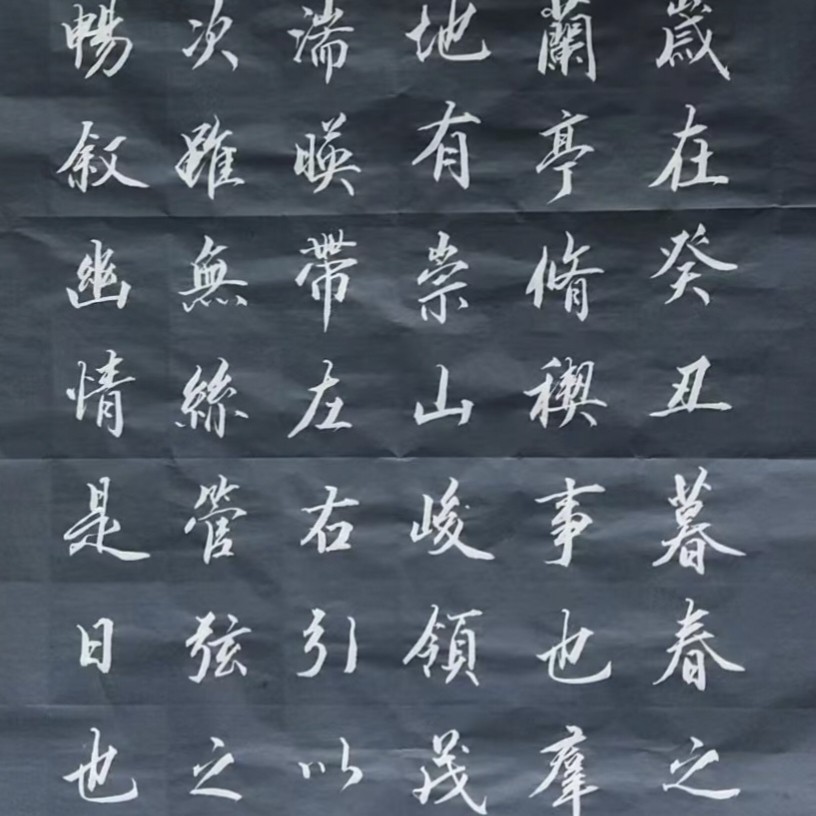 歲在癸丑暮春之
蘭亭脩禊事也羣
地有崇山峻領茂
湍暎帶左右引以
次雖無絲管弦之
暢叙幽情是日也